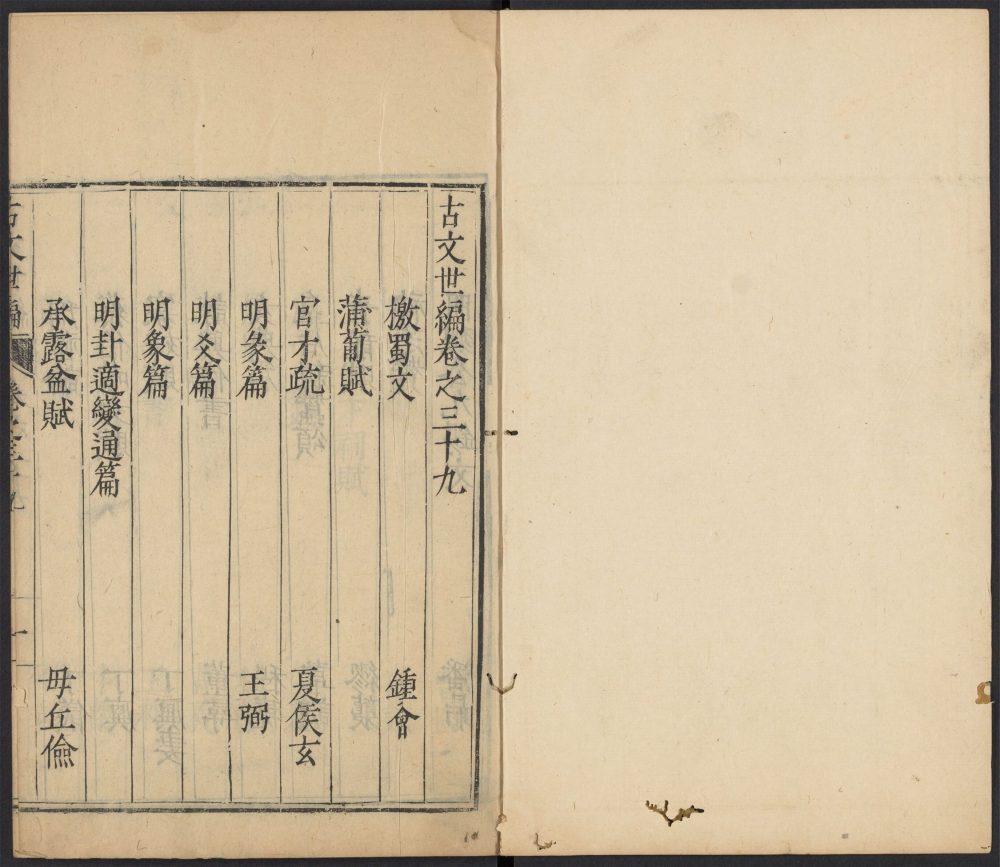 古文世編卷之三十九
檄蜀文 鍾會
蒲萄賦
官才疏 夏侯玄
明彖篇 王弼
明爻篇
明象篇
明卦適變通篇
承露盆賦 毋丘儉
古文世編 卷之三十九 一